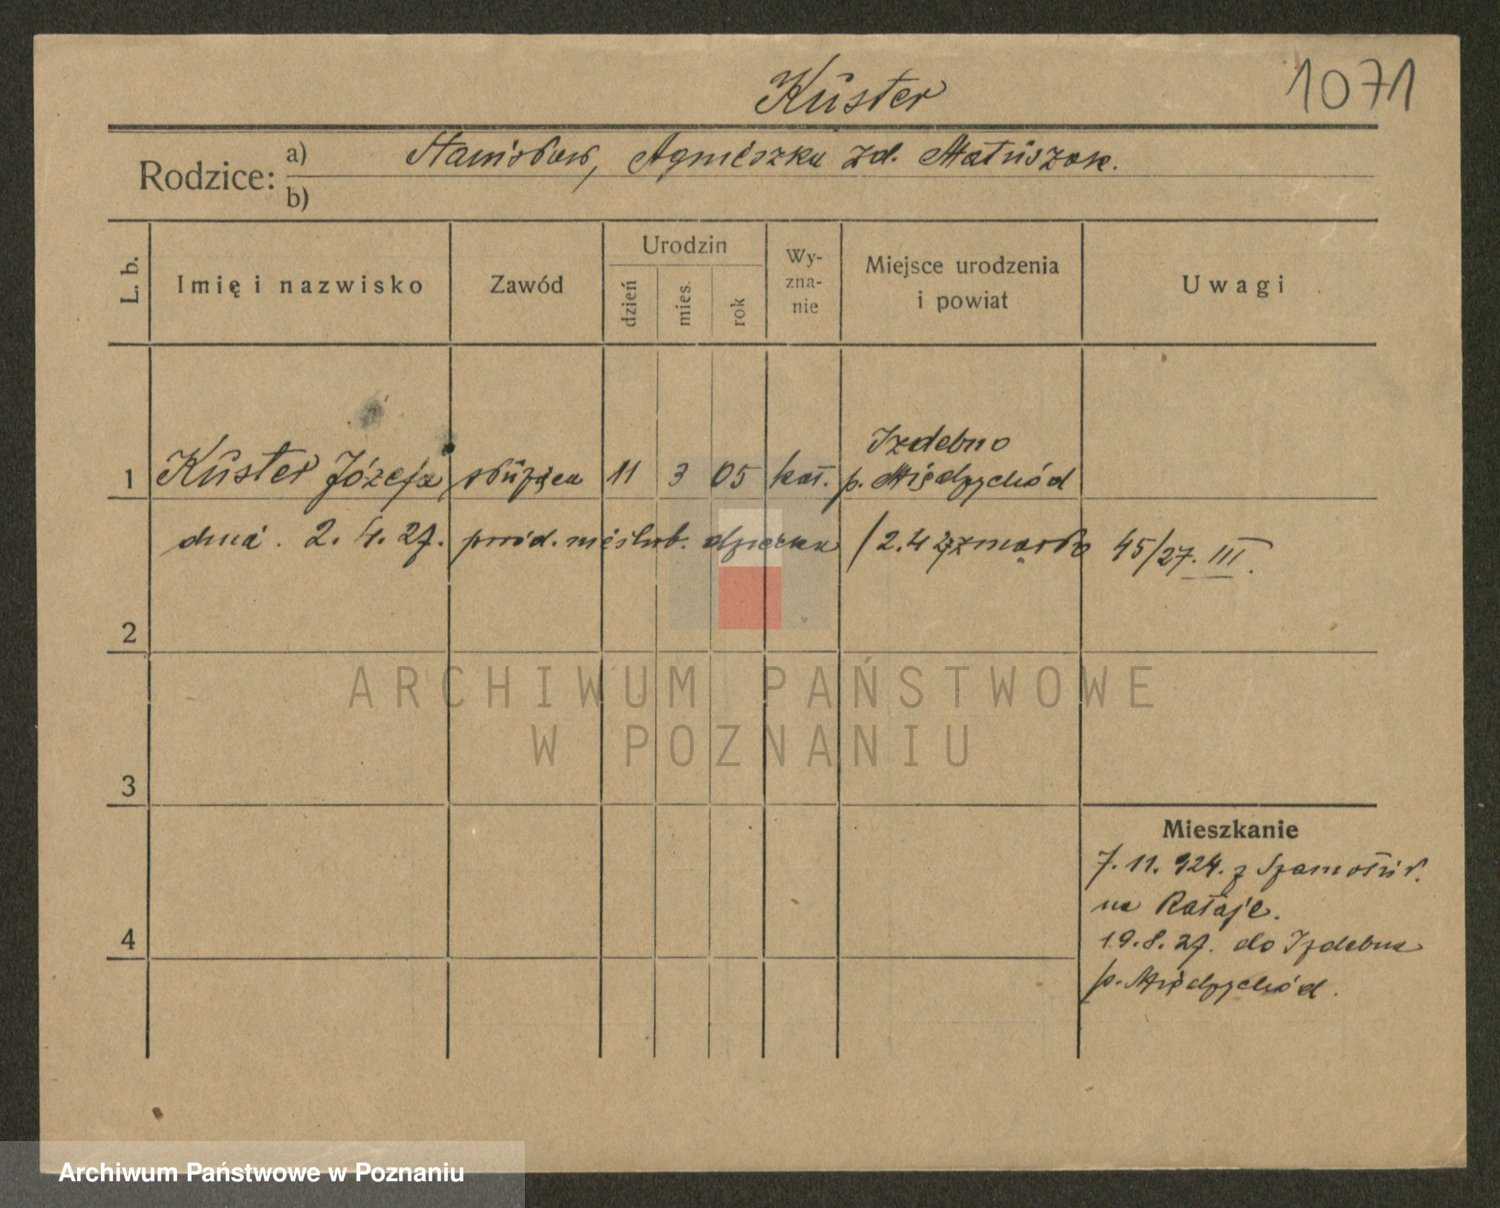 Küster
1071
Rodzice: a) Stanisław, Agnieszka zd. Matuszak.
b)
L. b.
Imię i nazwisko
Zawód
Urodzin
dzień
mies.
rok
Wy-
zna-
nie
Miejsce urodzenia
i powiat
Uwagi
Izdebno
1 Küster Józefa służąca 11 3 05 kat. p. Międzychód
dnia 2.4.27. nieślub. dziecka / 2.4.27 zmarło 45/27. III.
2
3
4
Mieszkanie
7.11.924. z Szamotuł.
na Rataje.
19.8.27. do Izdebna
p. Międzychód.
ARCHIWUM PAŃSTWOWE
W POZNANIU
Archiwum Państwowe w Poznaniu